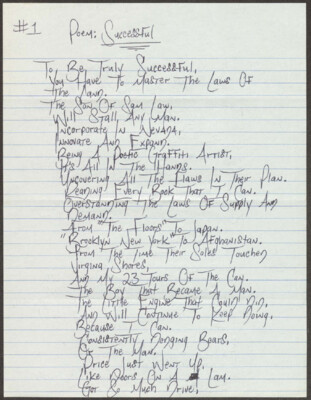 #1
Poem: Successful
To Be Truly Successful,
You Have To Master The Laws Of
The Land.
The Son Of Sam Law,
Will Stall Any Man.
Incorporate In Nevada,
Innovate And Expand.
Being A Poetic Graffiti Artist,
It's All In The Hands.
Uncovering All The Flaws In Their Plan.
Reading Every Book That I Can.
Overstanding The Laws Of Supply And
Demand.
From "The Floors" To Japan.
Brooklyn New York To Afghanistan.
From The Time Their Soles Touched
Virgina Shores,
And My 23 Tours Of The Can.
The Boy That Became A Man.
The Little Engine That Could Did,
And Will Continue To Keep Going,
Because I Can.
Consistently Dodging Boars,
Of The Man.
Price Just Went Up,
Like Doors On A Lam.
Got So Much Drive,